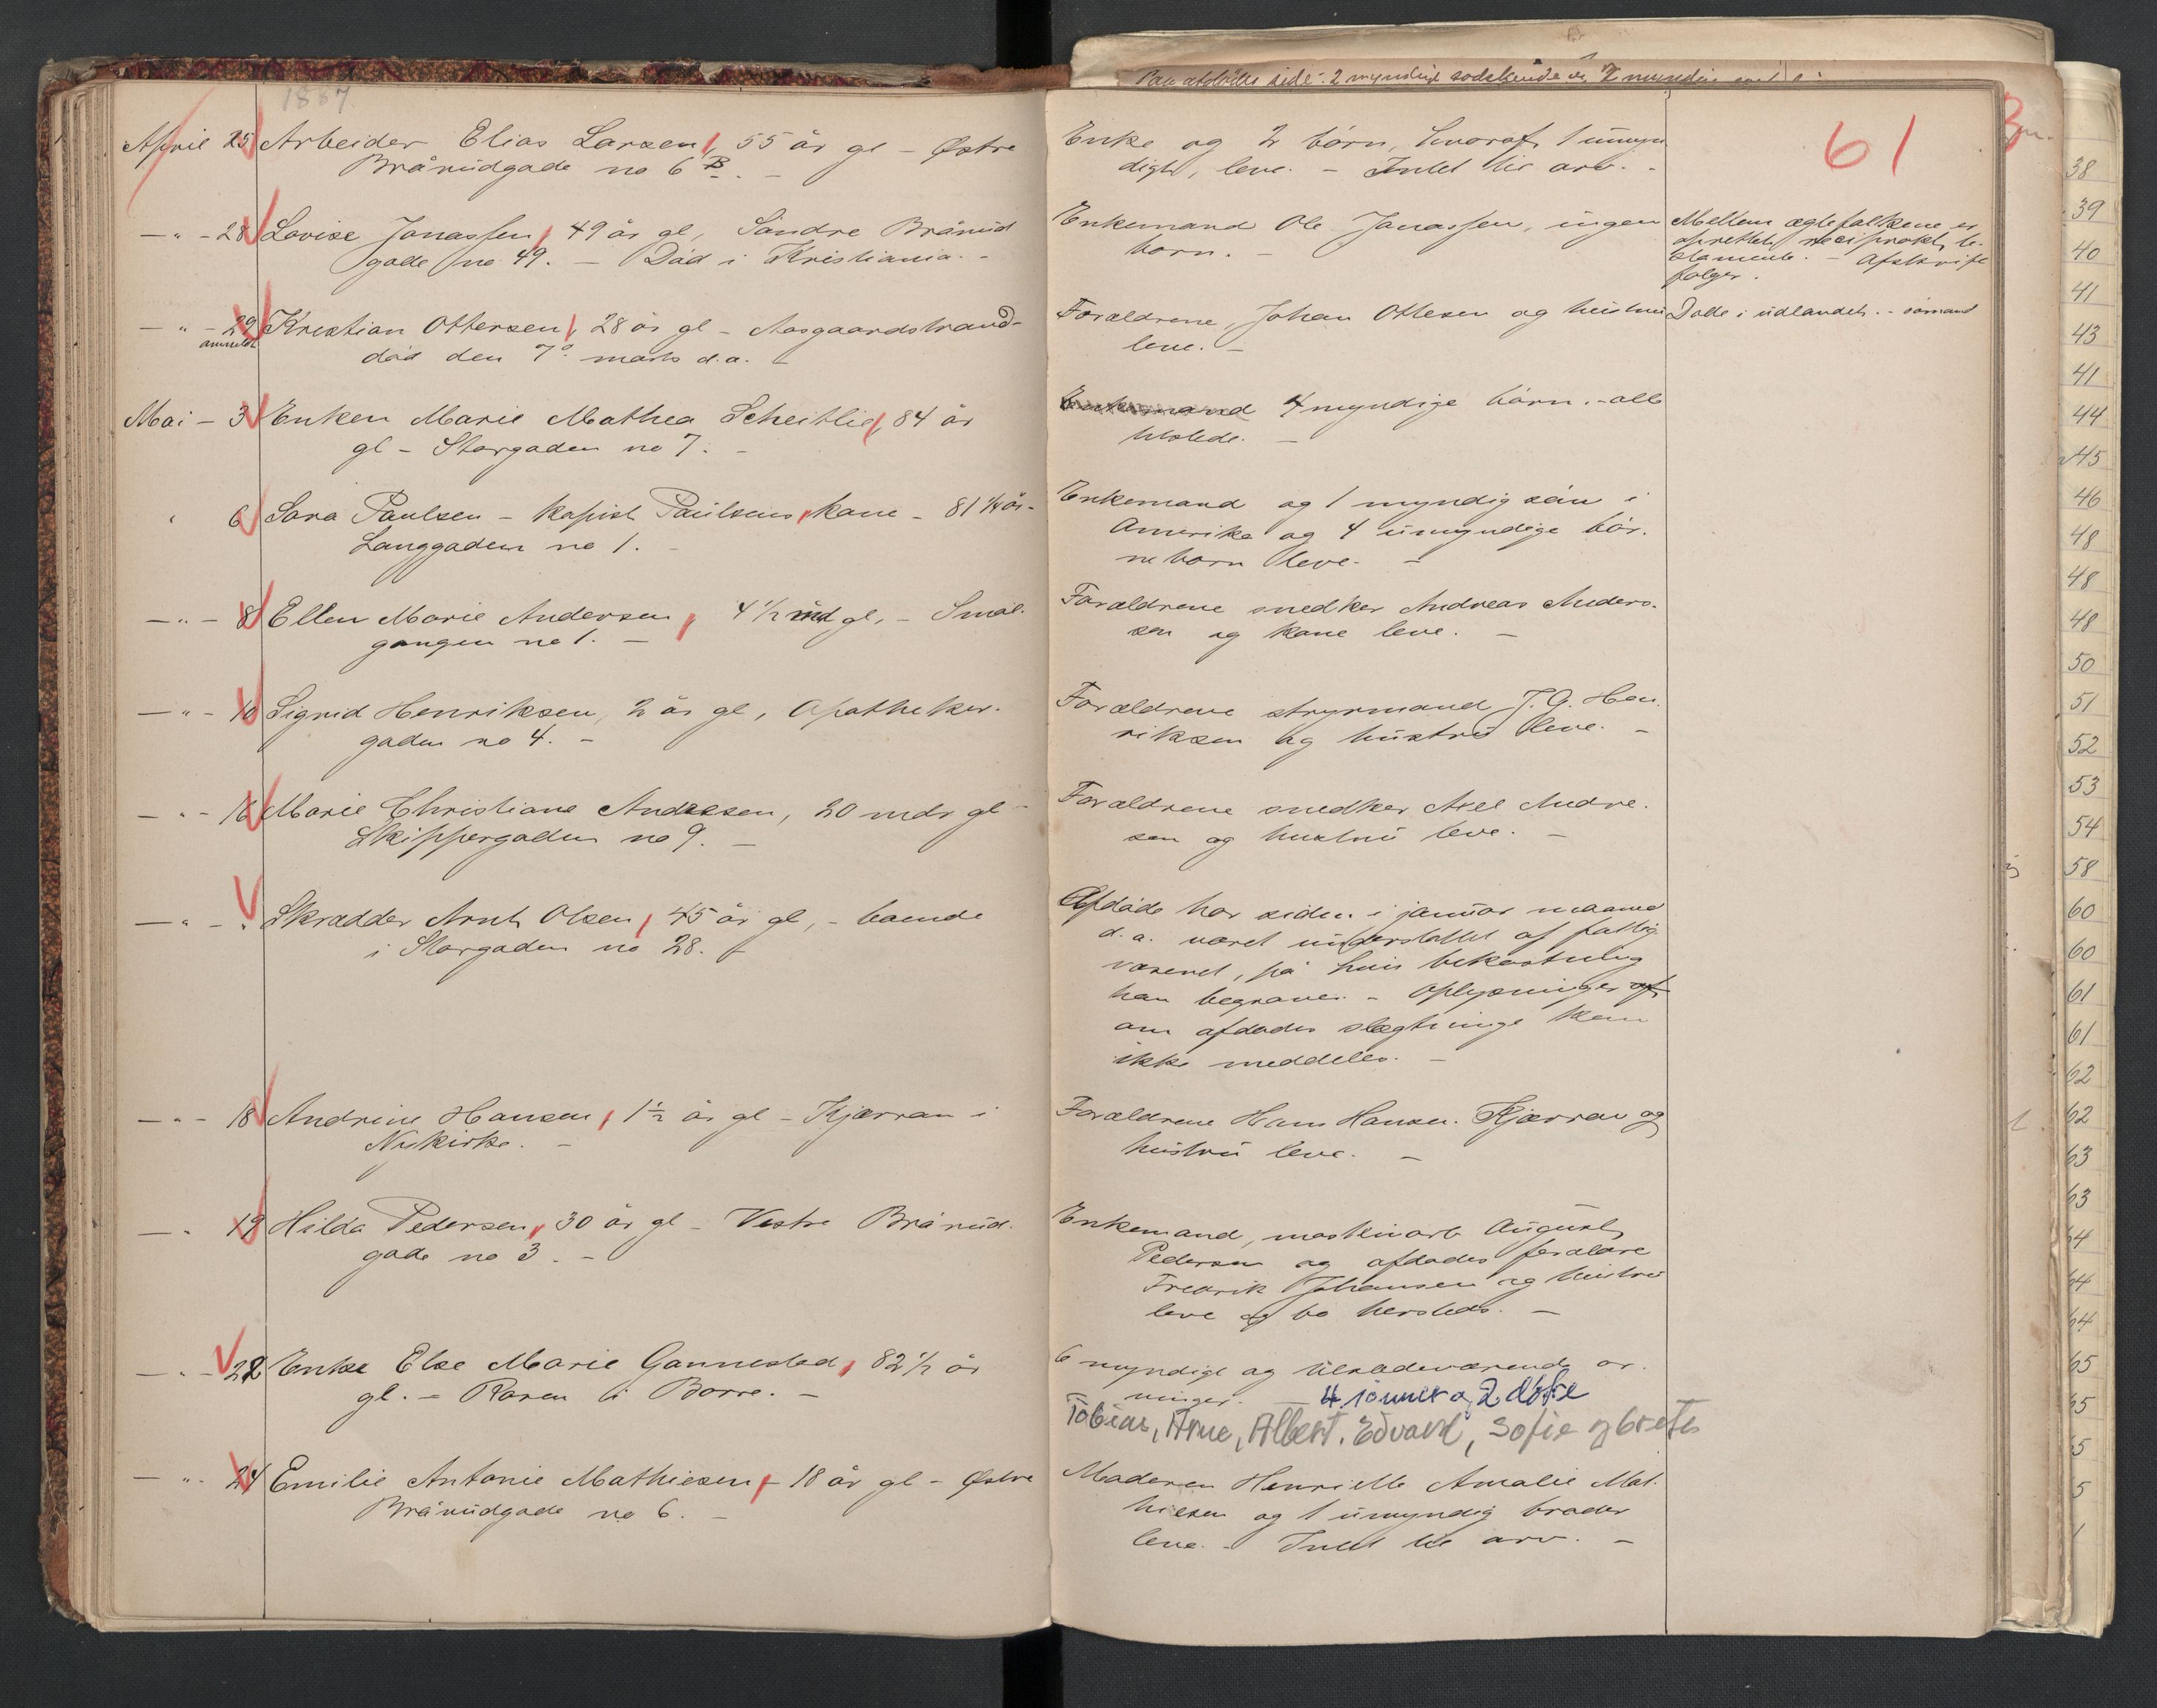 1887.
April 25 Arbeider Elias Larsen, 55 år gl – Østre
Brårudgade no 6 B. –
– " – 28 Lovise Jonassen, 49 år gl, Søndre Brårud
gade no 49. – Död i Kristiania. –
– " – 29 Kristian Ottersen, 28 år gl – Aasgaardstrand –
anmeldt död den 7de marts d.a. –
Mai – 3 Enken Marie Mathea Scheitlie, 84 år
gl – Storgaden no 7. –
6 Sara Paulsen – Kapist Paulsens kone – 81 ½ år –
Langgaden no 1. –
– " – 8 Ellen Marie Andersen, 4 ½ md gl, – Smal-
gangen no 1. –
– " – 10 Sigrid Henriksen, 2 år gl, Apotheker-
gaden no 4. –
– " – 16 Marie Christiane Andresen, 20 mdr gl –
Skippergaden no 9. –
– " – " Skrædder Arnt Olsen, 45 år gl, – boende
i Storgaden no 28. –
– " – 18 Andrine Hansen, 1 ½ år gl – Kjærran i
Nykirke. –
– " 19 Hilda Pedersen, 30 år gl – Vestre Brårud-
gade no 3. –
– " – 22 Enke Else Marie Gannestad, 82 ½ år
gl. – Roren i Borre. –
– " – 24 Emilie Antonie Mathiesen, – 18 år gl – Østre
Brårudgade no 6. –
2 myndige sødskende og 2
61
Enke og 2 börn, hvoraf 1 umyn
digt, leve. – Intet til arv. –
Enkemand Ole Jonassen, ingen
börn. –
Mellem ægtefolkene er
oprettet reciprokt te-
stamente. – Afskrift
fölger.
Forældrene, Johan Ottesen og hustru
leve. –
Döde i udlandet. – sömand
Enkemand 4 myndige börn. – alle
tilstede. –
Enkemand og 1 myndig sön i
Amerika og 4 umyndige bör-
nebörn leve. –
Forældrene snedker Andreas Anders-
sen og kone leve. –
Forældrene styrmand J. G. Hen-
riksen og hustru leve. –
Forældrene snedker Axel Andre-
sen og hustru leve. –
Afdöde har siden i januar maaned
d.a. været understöttet af fattig-
væsenet, på hvis bekostning
han begraves. – Oplysninger af
om afdödes slægtninge kan
ikke meddeles. –
Forældrene Hans Hansen Kjærran og
hustru leve. –
Enkemand, maskinarb August
Pedersen og afdödes forældre
Fredrik Johansen og hustru
leve og bo hersteds. –
6 myndige og tilstedeværende ar-
vinger. – 4 sönner og 2 dötre
Tobias, Arne, Albert, Edvard, Sofie og Grete
Moderen Henriette Amalie Mat-
hiesen og 1 umyndig broder
leve. – Intet til arv. –
38
39
40
41
43
41
44
45
46
48
48
48
50
51
52
53
54
58
60
60
61
61
62
62
63
63
64
64
64
65
65
5
5